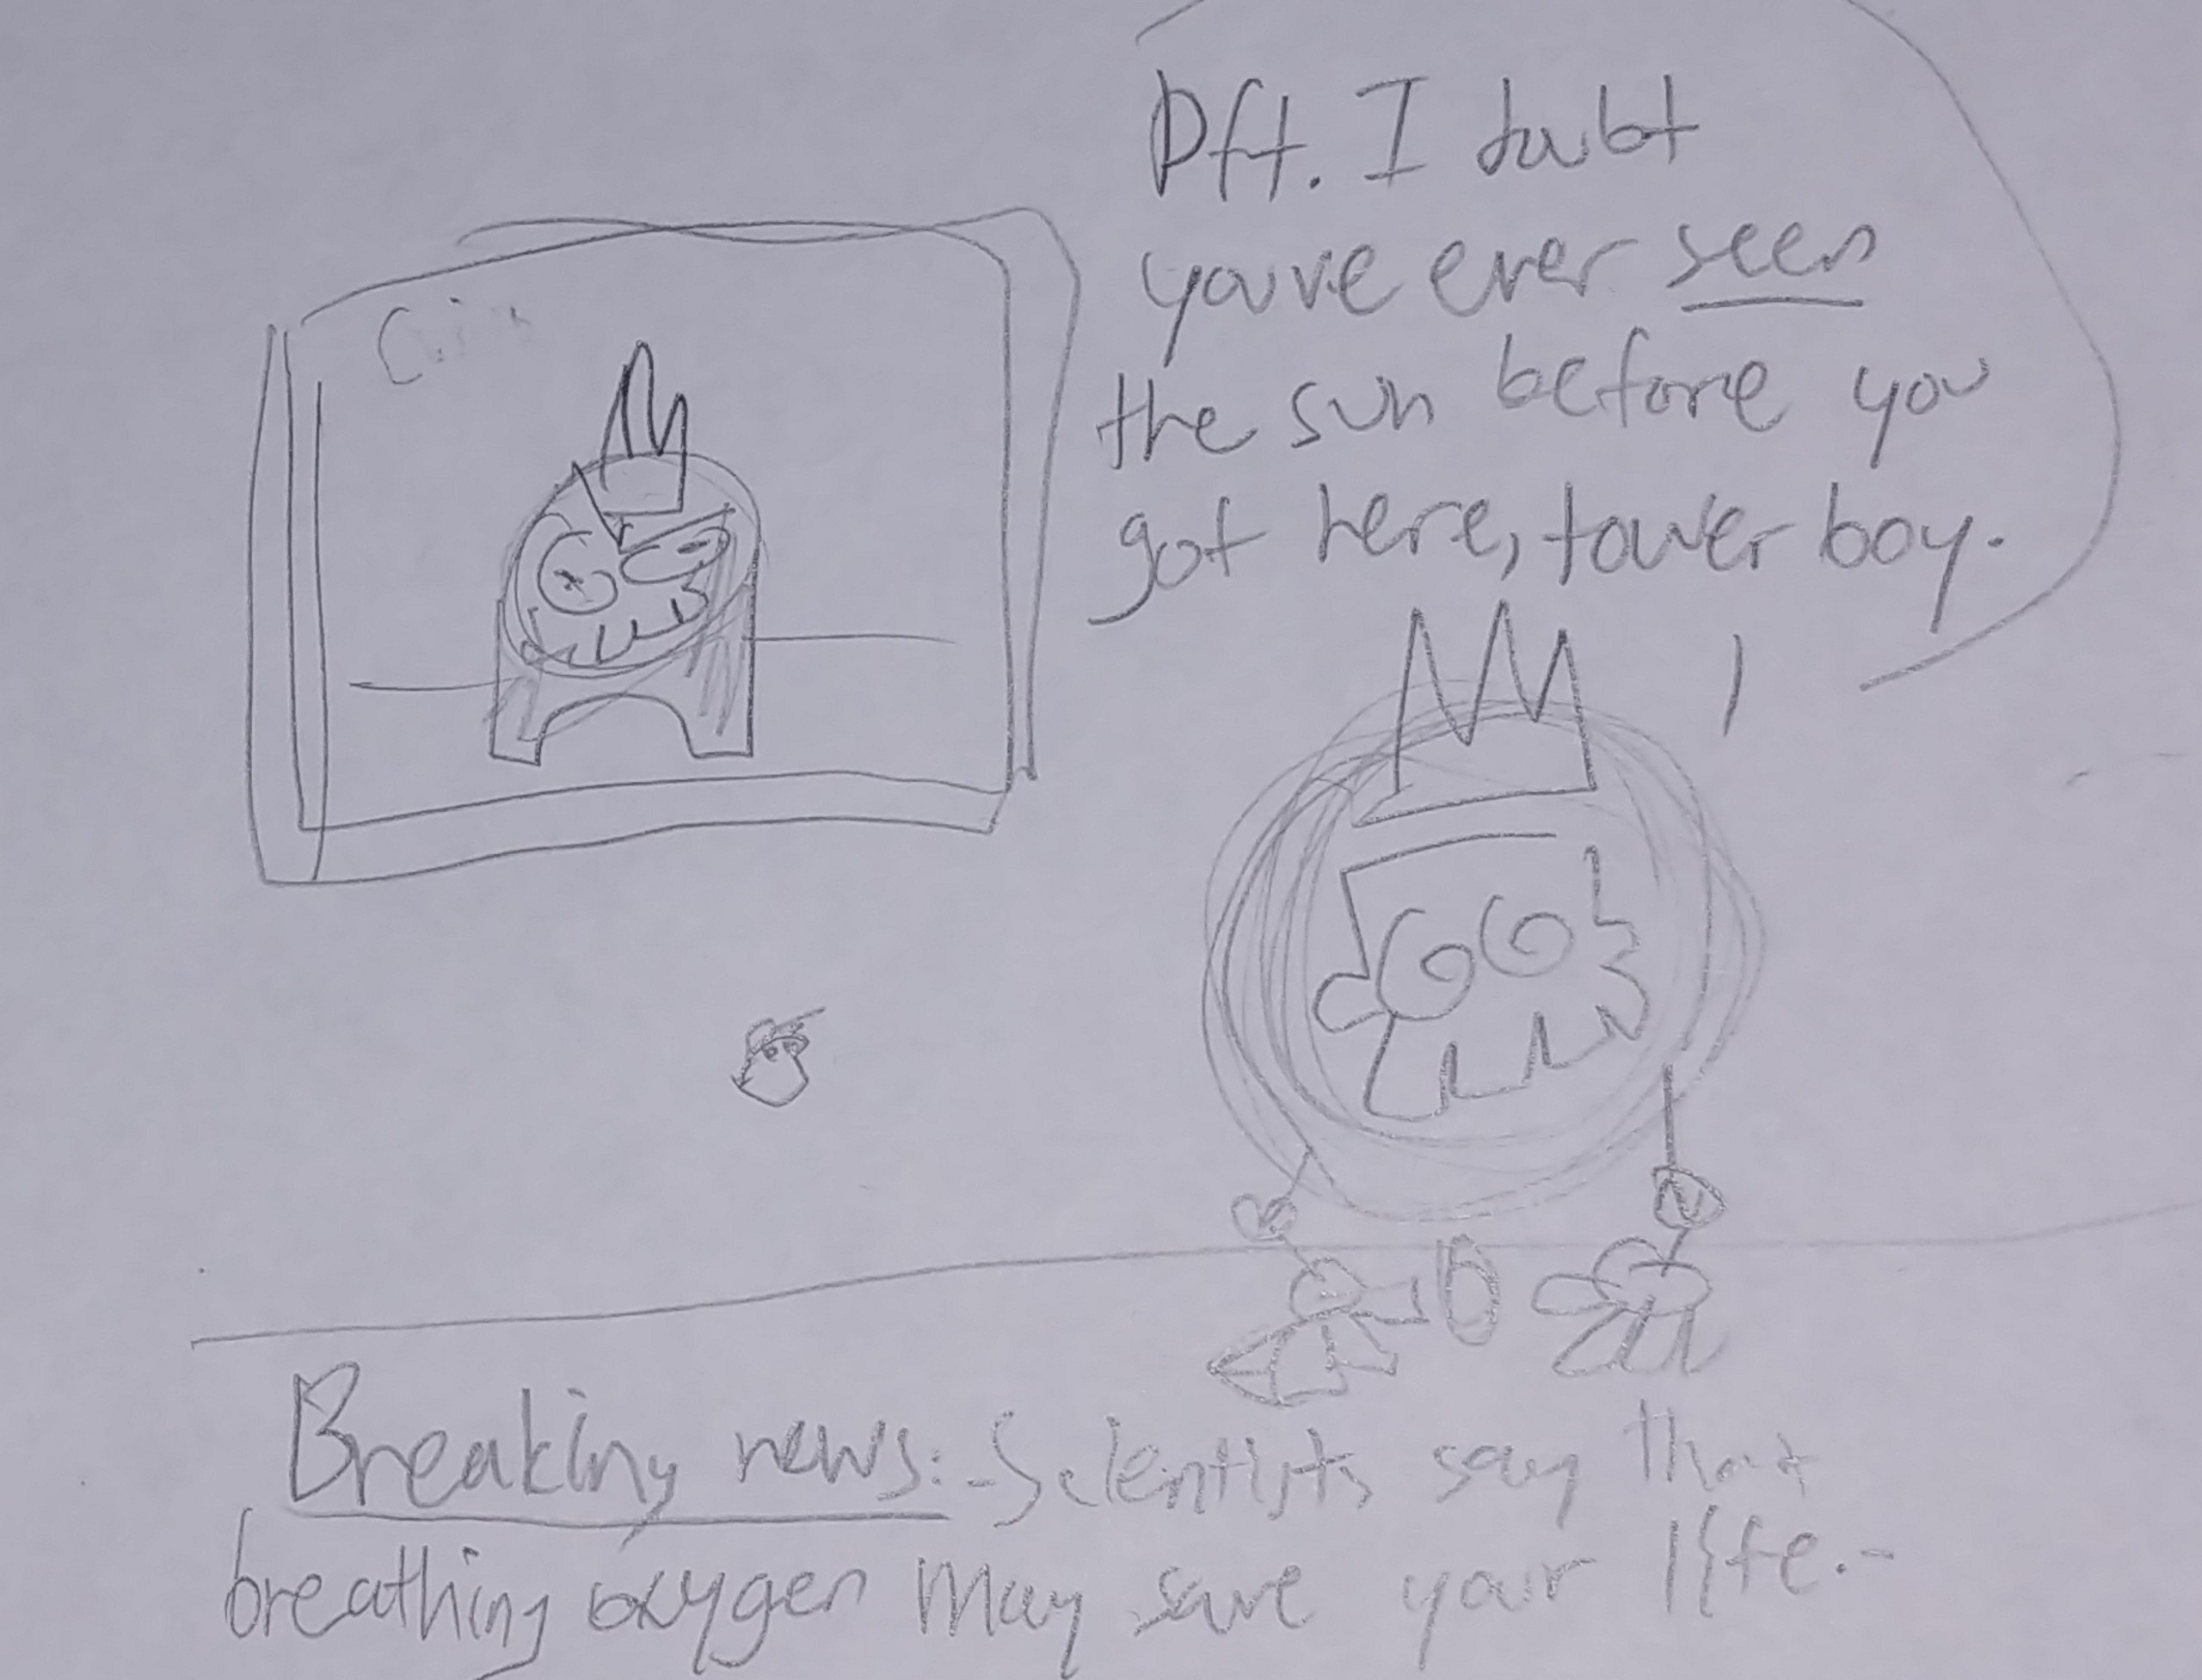 Pft. I doubt
youve ever seen
the sun before you
got here, tower boy.
Breaking news:-Scientists say that
breathing oxygen may save your life.-